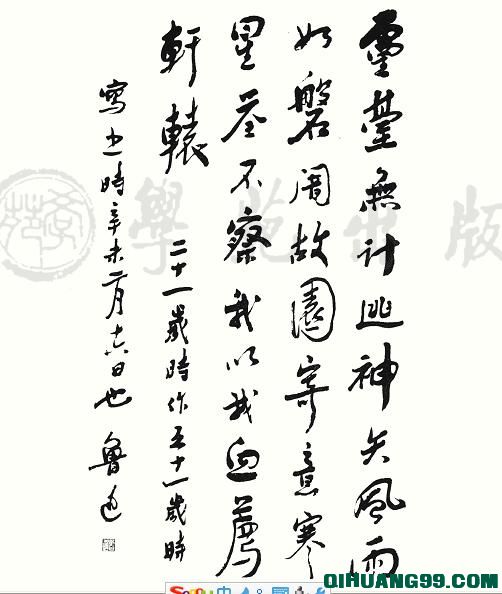 靈臺無計逃神矢風雨
如磐闇故園寄意寒
星荃不察我以我血薦
軒轅
二十一歲時作五十一歲時
寫之時辛未二月十六日也 魯迅
學苑出版
QIHUANG99.COM